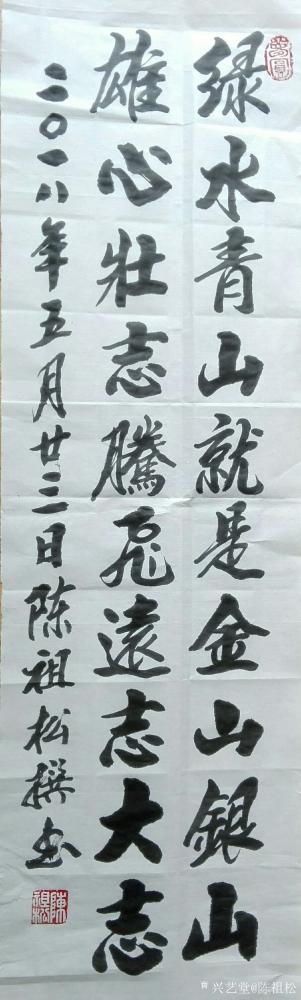 绿水青山就是金山銀山
雄心壮志騰飞遠志大志
二〇一八年五月廿三日陈祖松撰书
陳祖松
兴艺堂@陈祖松